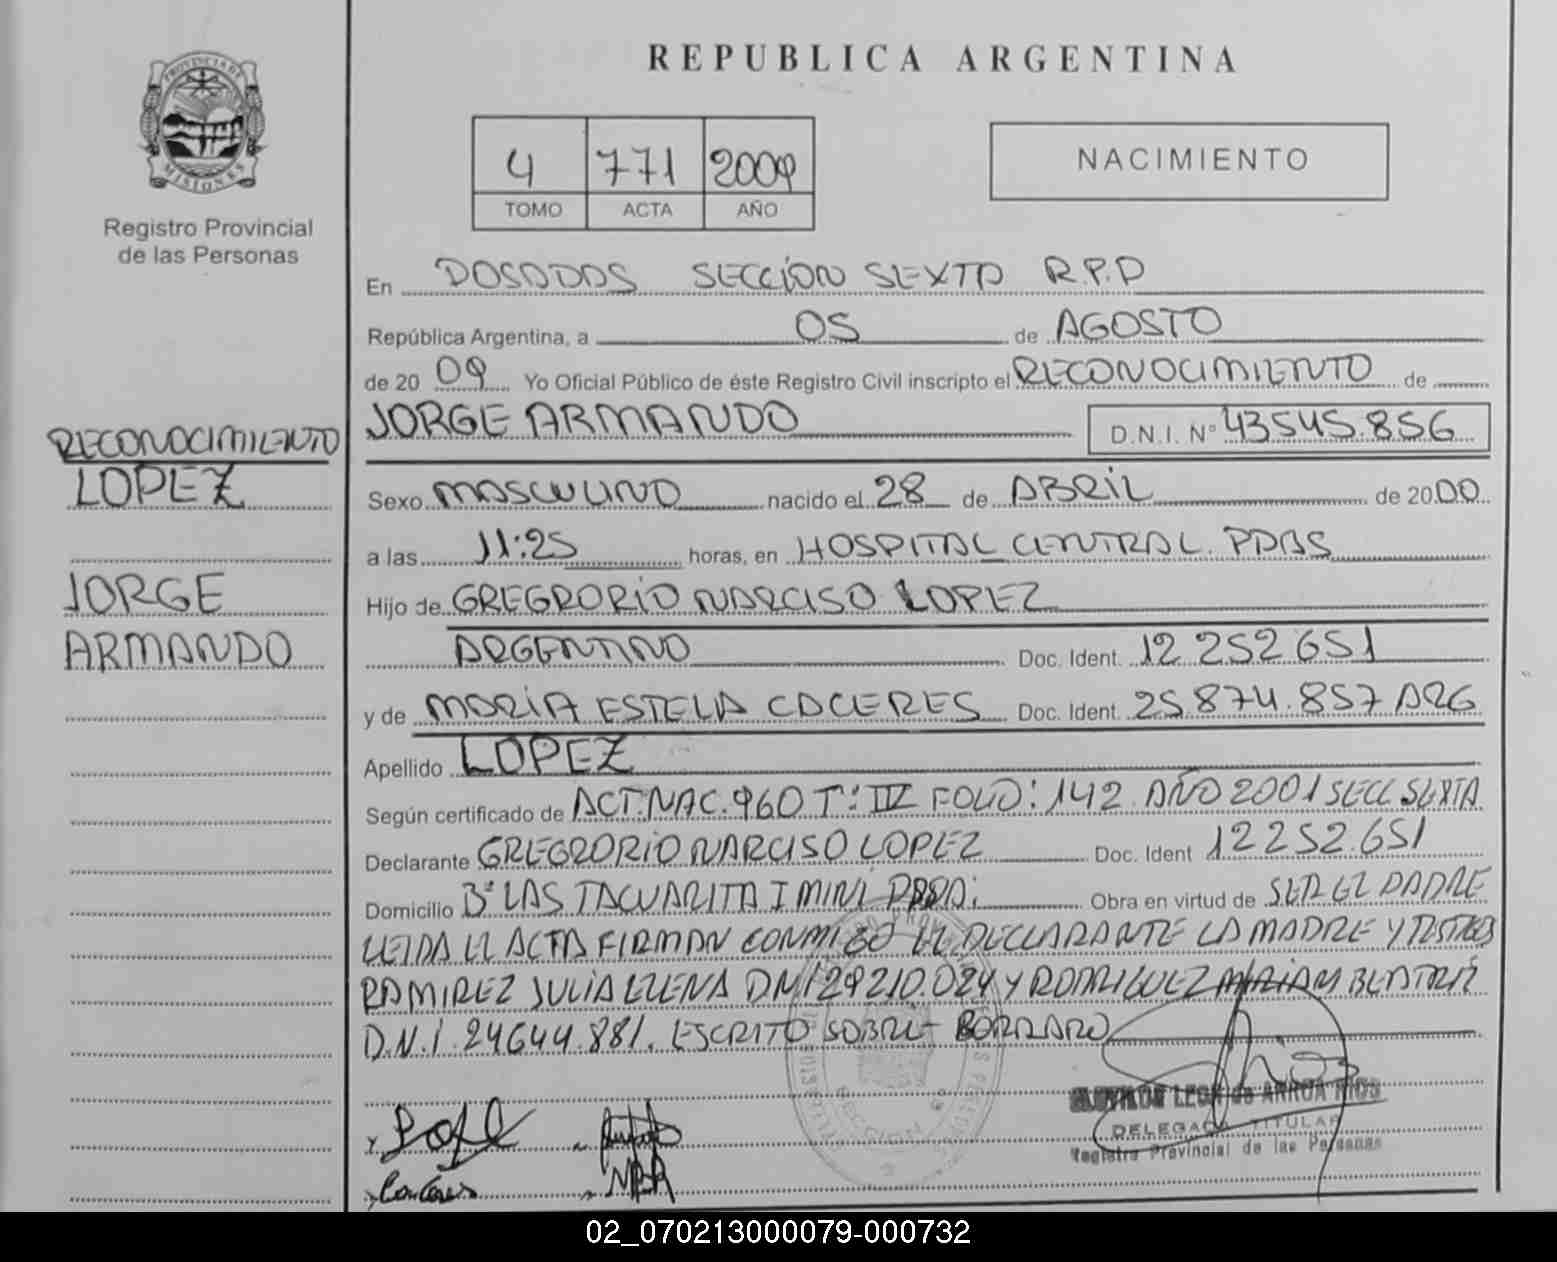 REPUBLICA ARGENTINA
PROVINCIA DE
MISIONES
Registro Provincial
de las Personas
4 771 2009
TOMO ACTA AÑO
NACIMIENTO
En POSADAS SECCIÓN SEXTA R.P.P
República Argentina, a 05 de AGOSTO
de 20 09 Yo Oficial Público de éste Registro Civil inscripto el RECONOCIMIENTO de
JORGE ARMANDO D.N.I. Nº 43545.856
RECONOCIMIENTO
LOPEZ
JORGE
ARMANDO
Sexo MASCULINO nacido el 28 de ABRIL de 20 00
a las 11:25 horas, en HOSPITAL CENTRAL. PDAS
Hijo de GREGRORIO NARCISO LOPEZ
ARGENTINO Doc. Ident. 12 252 651
y de MARIA ESTELA CACERES Doc. Ident. 25.874.857 ARG
Apellido LOPEZ
Según certificado de ACT.NAC.960 Tº: IV FOLIO: 142 AÑO 2001 SECC SEXTA
Declarante GREGRORIO NARCISO LOPEZ Doc. Ident 12252.651
Domicilio Bº LAS TACUARITA I MINI Obra en virtud de SER EL PADRE
LEIDA EL ACTA FIRMAN CONMIGO EL DECLARANTE LA MADRE Y TESTIGOS
RAMIREZ JULIA ELENA DNI 29210.024 Y RODRIGUEZ MIRIAM BEATRIZ
D.N.I. 24644.881. ESCRITO SOBRE BORRADO
SECCION 6º
LEON de ARRUA RIOS
DELEGADA TITULAR
Registro Provincial de las Personas
02_070213000079-000732